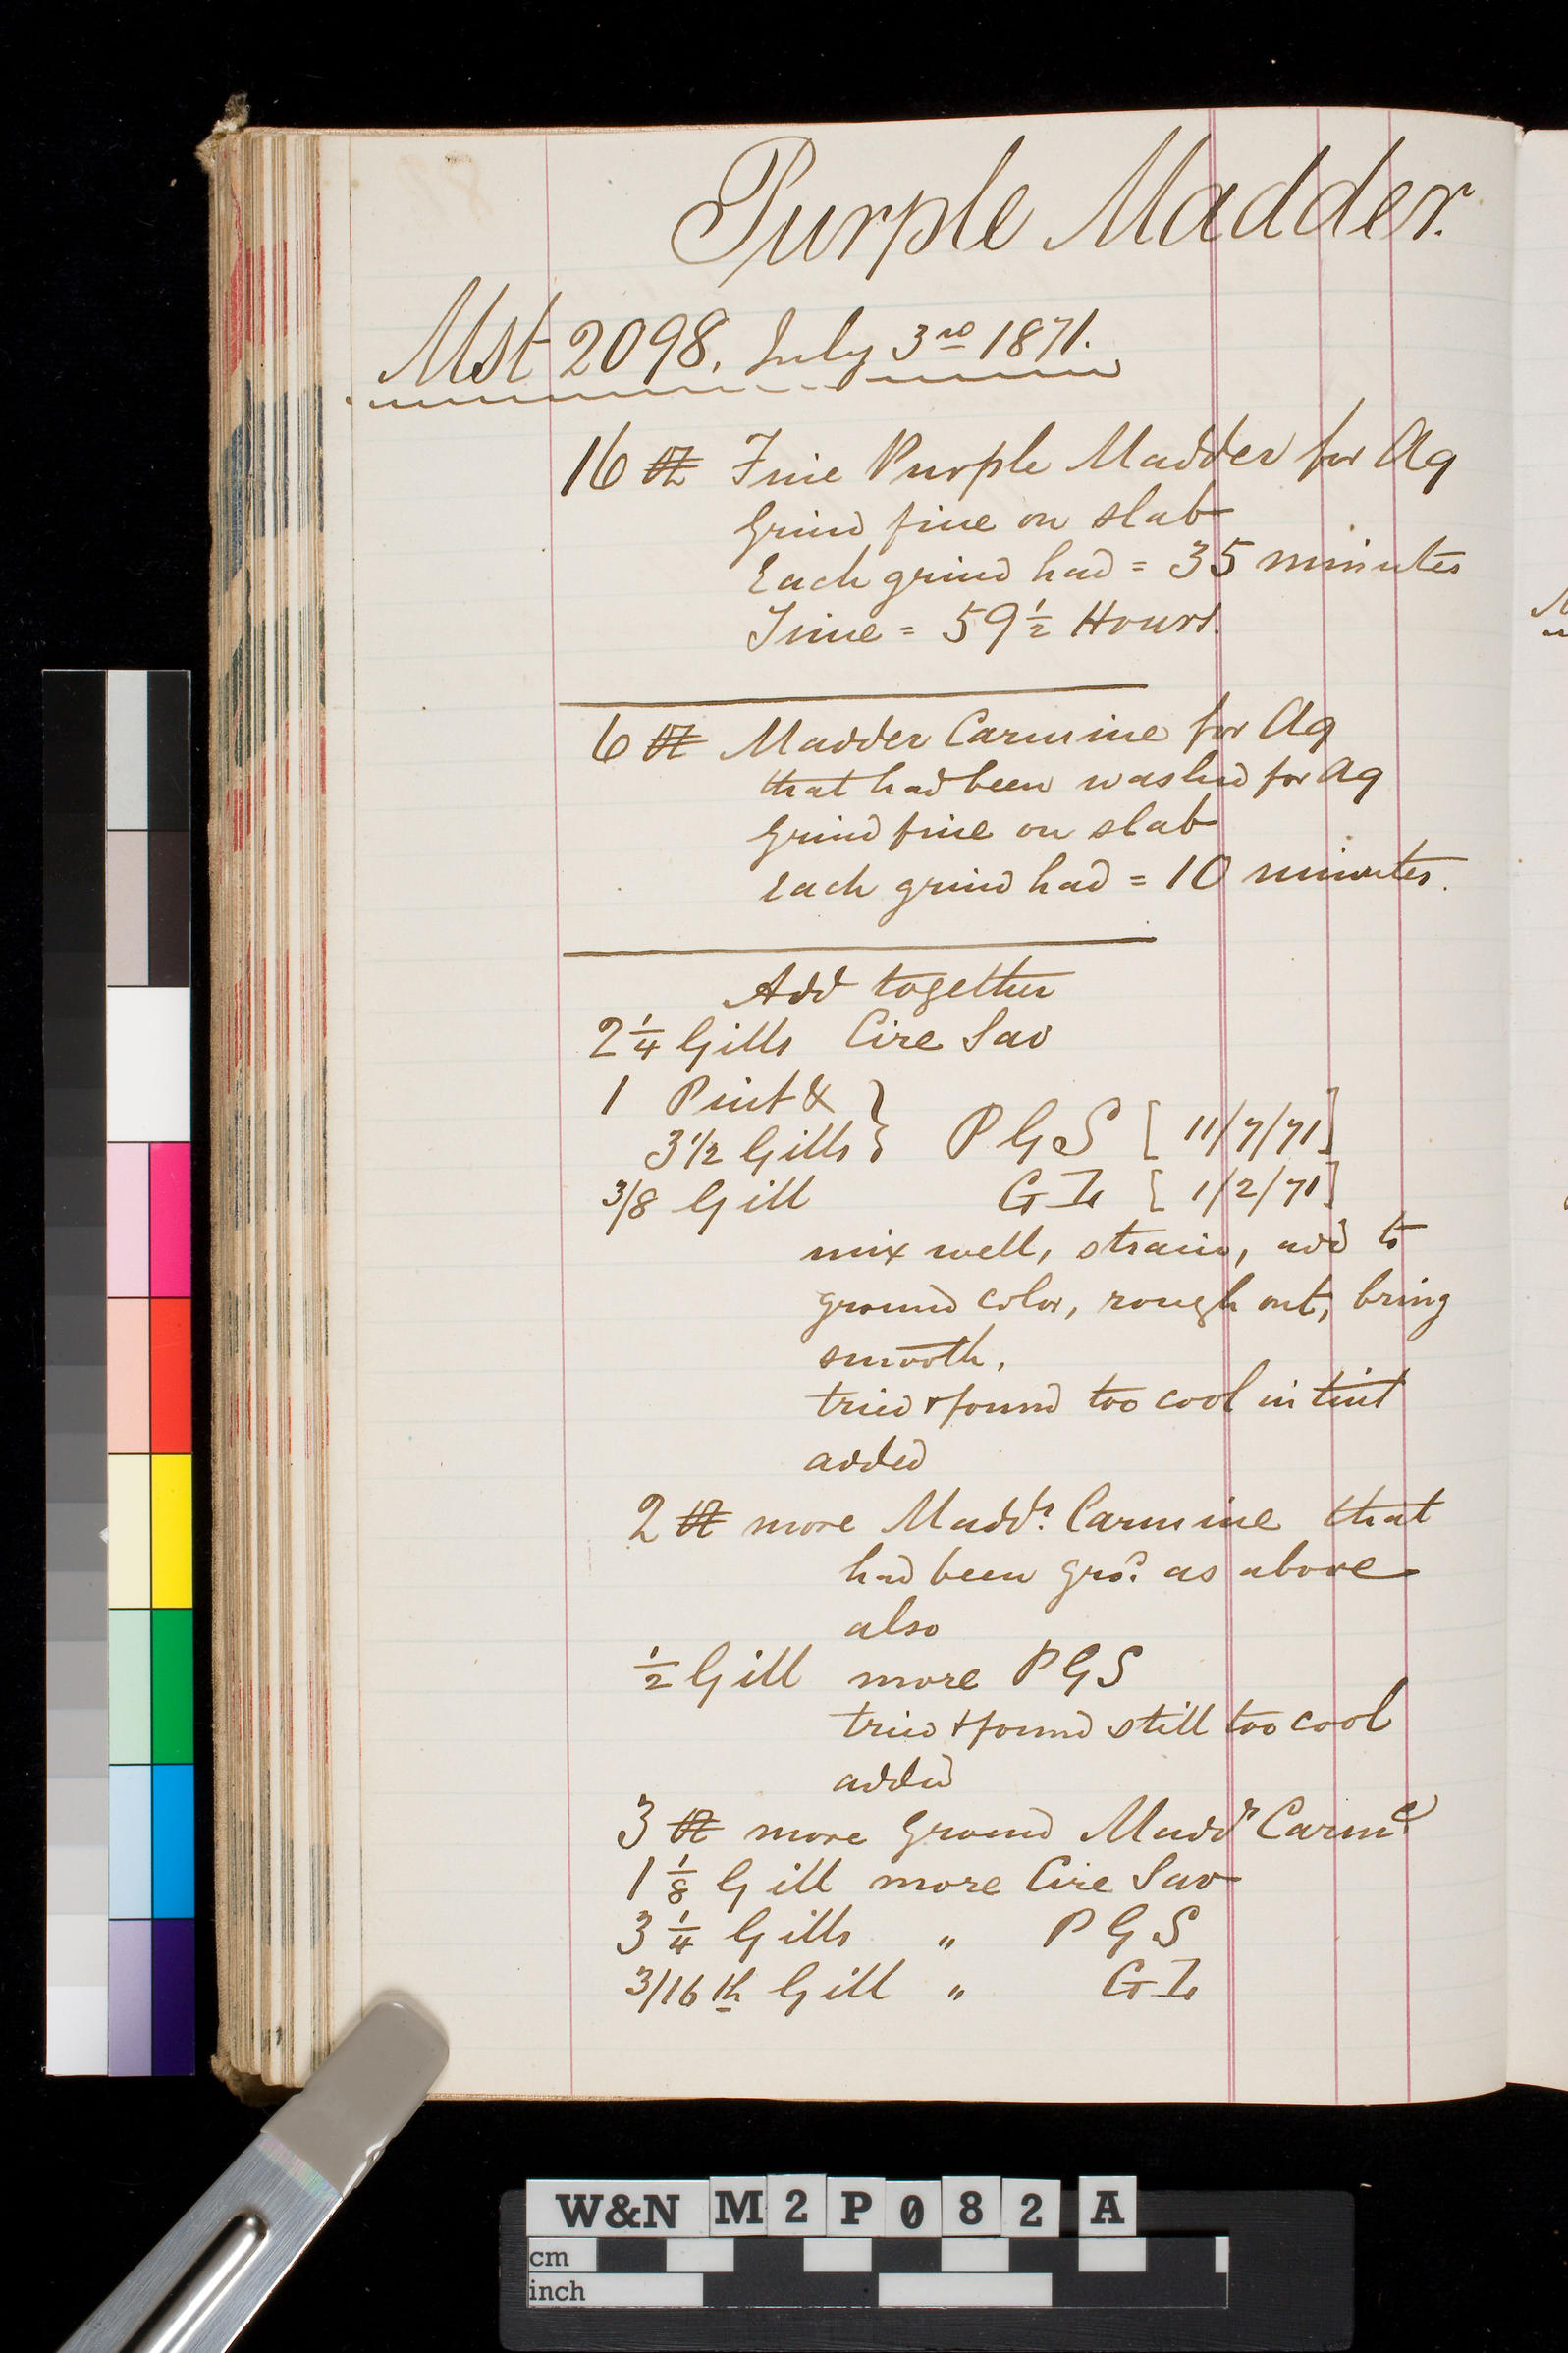 Purple Madder.
Mst 2098. July 3rd 1871.
16 ℔ Fine Purple Madder for Aq
Grind fine on slab
Each grind had = 35 minutes
Time = 59 1/2 Hours.
6 ℔ Madder Carmine for Aq
that had been washed for Aq
Grind fine on slab
Each grind had = 10 minutes.
Add together
2 1/4 Gills Cire Sav
1 Pint &
3 1/2 Gills } P G S [11/7/71]
3/8 Gill G I [1/2/71]
mix well, strain, add to
ground color, rough out, bring
smooth.
tried & found too cool in tint
added
2 ℔ more Maddr. Carmine that
had been grd. as above
also
1/2 Gill more P G S
tried & found still too cool
added
3 ℔ more ground Maddr Carme
1 1/8 Gill more Cire Sav
3 1/4 Gills " P G S
3/16th Gill " G I
W&N M2P082 A
cm
inch